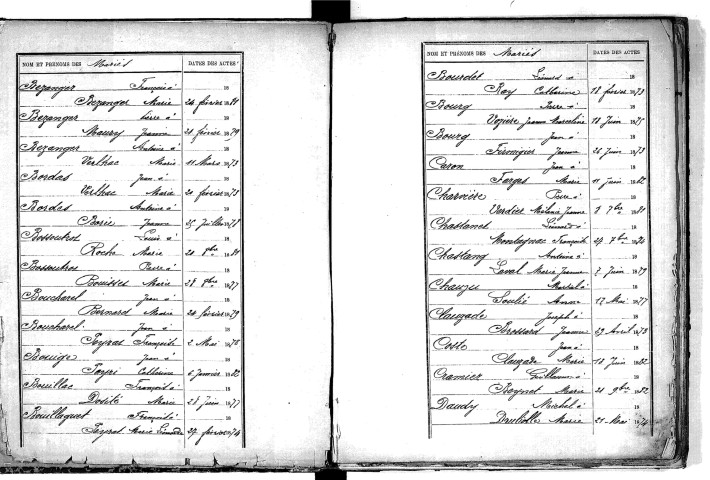 NOM ET PRÉNOMS DES Mariés DATES DES ACTES
Bezanger François à 18
Bezanger Marie 24 février 1881
Bezanger Pierre à 18
Maury Jeanne 21 février 1879
Bezanger Antoine à 18
Verlhac Marie 11 Mars 1873
Bordas Jean à 18
Verlhac Marie 20 février 1873
Bordes Antoine à 18
Borie Jeanne 25 Juillet 1878
Bossoutrot Louis à 18
Roche Marie 20 8bre 1881
Bossoutrot Pierre à 18
Bouisset Marie 28 9bre 1877
Boucharel Jean à 18
Bernard Marie 20 février 1879
Boucharel Jean à 18
Peyras Françoise 2 Mai 1878
Bouige Jean à 18
Peyri Catherine 6 Janvier 1882
Bouillac François à 18
Marie 28 Juin 1877
Bouillaguet François à 18
Peyrat Marie Léonarde 27 février 1874
NOM ET PRÉNOMS DES Mariés DATES DES ACTES
Bourdet Léonard à 18
Ray Catherine 18 février 1873
Bourg Pierre à 18
Vezière Jeanne Marceline 18 Juin 1875
Bourg Jean à 18
Jeanne 26 Juin 1873
Caron Jean à 18
Farges Marie 11 Juin 1882
Charvière Pierre à 18
Verdier Jeanne 8 7bre 1881
Chastanet Léonard à 18
Montagnac Françoise 29 7bre
Chastang Antoine à 18
Laval Marie Jeanne 7 Juin 1879
Chauzu Martial à 18
Soulié Anne 17 Mai 1877
Clauzade Joseph à 18
Brossard Jeanne 29 Avril 1873
Coste Jean à 18
Clauzade Marie 18 Juin 1882
Cramier Guillaume à 18
Boynet Marie 21 9bre 1882
Daudy Michel à 18
Marie 21 Mai 1874